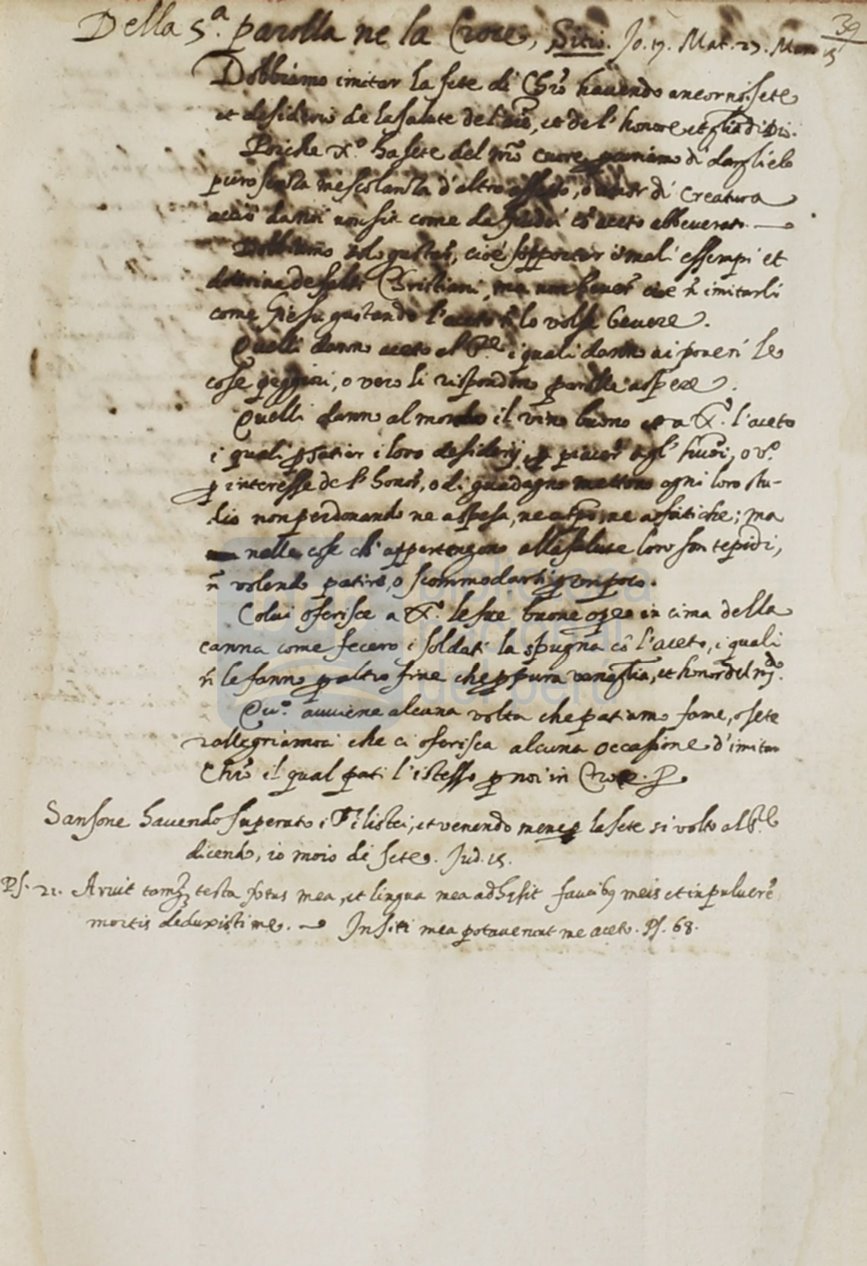 39
Della 5.ª parolla ne la Croce, Sitio. Jo. 19. Mat. 27. Mar. 15
Dobbiamo imitar la sete di Chro havendo ancor noi sete
et desiderio de la salute del , et de l'honore et glia di Dio.
Poiche X.º ha sete del nro cuore, di darglielo
puro senza mescolanza d'altro affetto, o amor di Creatura
acciò non sia come da co aceto abbeverato.
Dobbiamo gustar, cioè sopportar i mali essempi et
dottrina de falsi Christiani, ma non bever cioè ñ imitarli
come Giesu gustando l'aceto ñ lo volse bevere.
Quelli danno aceto al Sre i quali danno ai poveri le
cose peggiori, o vero li rispondon parolle aspere.
Quelli danno al mondo il vino buono et a X.º l'aceto
i quali p satiar i loro desiderij, p piacer agl' , o v.º
p interesse de l'honor, o di guadagno mettono ogni loro stu-
dio non perdonando ne a spesa, ne a , ne a fatiche; ma
nelle cose ch' appertengono alla salute loro son tepidi,
ñ volendo patire, o scommodarsi p un poco.
Colui oferisce a X.º le sue buone opre in cima della
canna come fecero i soldati la spugna cõ l'aceto, i quali
ñ le fanno p altro fine che p pura vana glia, et honor del mdo.
Qu.º avviene alcuna volta che patiamo fame, o sete
rallegriamoci che ci oferisca alcuna occasione d'imitar
Chro il qual patì l'istesso p noi in Croce.
Sansone havendo superato i Filistei, et venendo meno p la sete si voltò al Sre
dicendo, io moio di sete. Jud. 15.
Ps. 21. Aruit tamq3 testa vtus mea, et lingua mea adhęsit faucib9 meis et in pulverē
mortis deduxisti me. In siti mea potaverunt me aceto. Ps. 68.